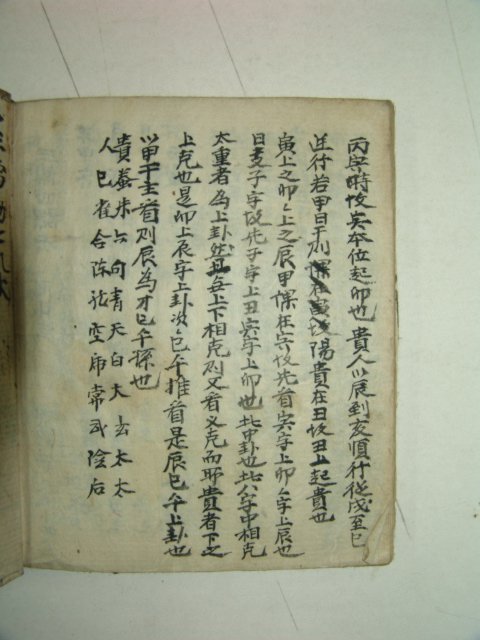 丙字時故寅本位起卯也貴人以辰到亥順行從戌至巳
逆行若甲日子則課在寅故陽貴在丑故丑上起貴也
寅上之卯卯上之辰甲課在寅故先看寅字上卯卯字上辰也
日支子字故先子字上丑寅字上卯也此中卦也此八字中相克
太重者為上卦然且每上下相克則又看又克而耶貴者下之
上克也是卯上辰字上卦次次巳午推看是辰巳午上卦也
以甲干主看則辰為才巳午孫也
貴螣朱六勾青天白大玄太太
人巳雀合陈竜空乕常武陰后